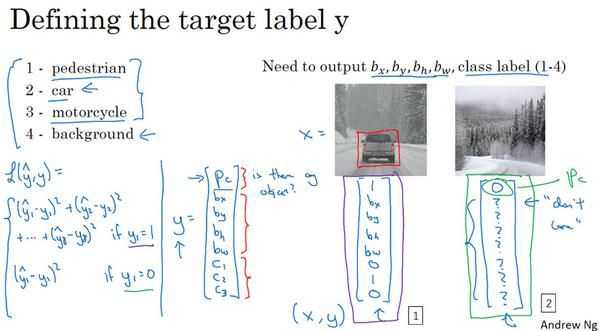 Defining the target label y
1 - pedestrian
2 - car ←
3 - motorcycle
4 - background ←
Need to output bx, by, bh, bw, class label (1-4)
x =
ℒ(ŷ,y) =
(ŷ₁-y₁)² + (ŷ₂-y₂)²
+ ... + (ŷ₈-y₈)² if y₁=1
(ŷ₁-y₁)² if y₁=0
y =
→
Pc
bx
by
bh
bw
C₁
C₂
C₃
is there any
object?
1
bx
by
bh
bw
0
1
0
(x, y)
1
0
?
?
?
?
?
?
?
Pc
← "don't
care"
2
Andrew Ng